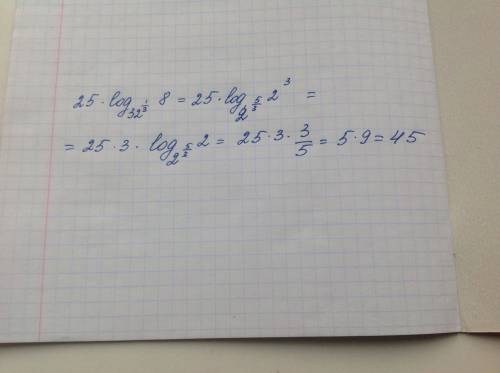 25 · log_{32^{1/3}} 8 = 25 · log_{2^{5/3}} 2^3 =
= 25 · 3 · log_{2^{5/3}} 2 = 25 · 3 · 3/5 = 5 · 9 = 45